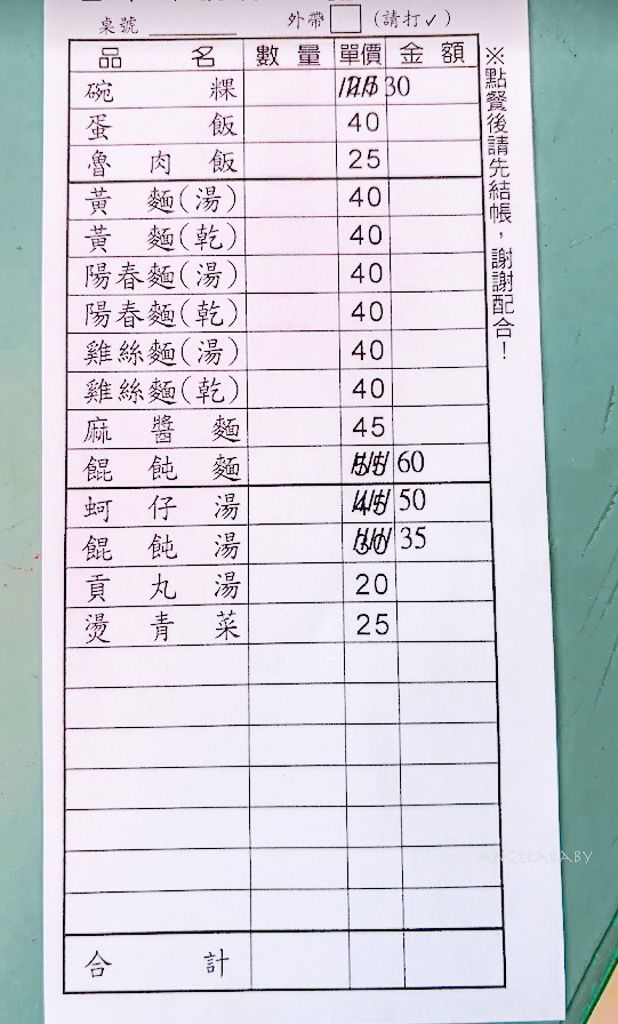 桌號 外帶 (請打✓)
品名 數量 單價 金額
碗粿 30
蛋飯 40
魯肉飯 25
黃麵(湯) 40
黃麵(乾) 40
陽春麵(湯) 40
陽春麵(乾) 40
雞絲麵(湯) 40
雞絲麵(乾) 40
麻醬麵 45
餛飩麵 60
蚵仔湯 50
餛飩湯 35
貢丸湯 20
燙青菜 25
合計
※點餐後請先結帳，謝謝配合！
ANGELABABY